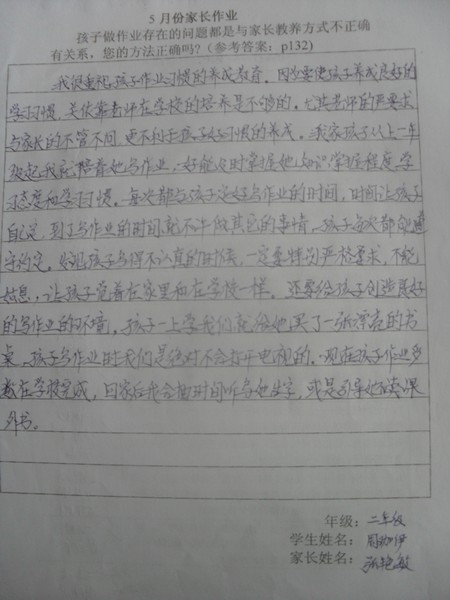 5 月份家长作业
孩子做作业存在的问题都是与家长教养方式不正确
有关系，您的方法正确吗？（参考答案：p132）
我很重视孩子作业习惯的养成教育。因为要使孩子养成良好的
学习习惯，关依靠老师在学校的培养是不够的。尤其老师的严要求
与家长的不管不问，更不利于孩子好习惯的养成。我家孩子从上一年
级起我就陪着她写作业，好能及时掌握她知识掌握程度、学
习态度和学习习惯。每次都与孩子定好写作业的时间，时间让孩子
自定，到了写作业的时间就不许做其它的事情。孩子每次都能遵
守约定。发现孩子写得不认真的时候，一定要特别严格要求，不能
姑息，让孩子觉着在家里和在学校一样。还要给孩子创造良好
的写作业的环境，孩子一上学我们就给她买了一张漂亮的书
桌，孩子写作业时我们是绝对不会打开电视的。现在孩子作业多
数在学校完成，回家后我会抽时间听写她生字，或是引导她读课
外书。
年级：二年级
学生姓名：周伊
家长姓名：孙艳敏